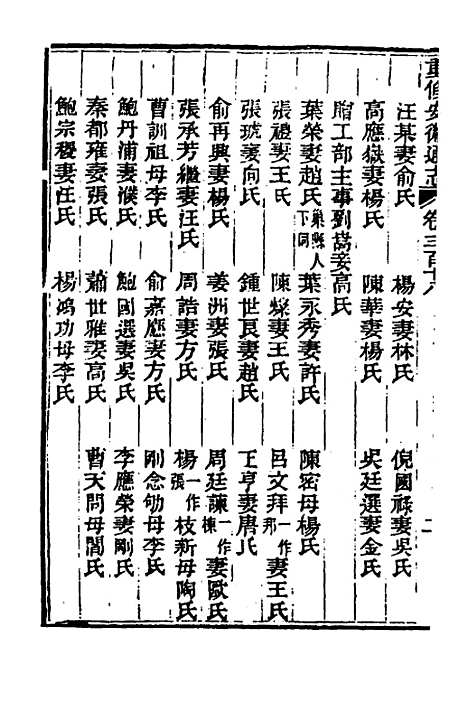 重修安徽通志 卷三百十八 二
汪某妻俞氏 楊安妻林氏 倪國祿妻吳氏
高應嶽妻楊氏 陳華妻楊氏 吳廷選妻金氏
贈工部主事劉萬妾高氏
葉榮妻趙氏巢縣人下同 葉永秀妻許氏 陳密母楊氏
張禮妻王氏 陳燦妻王氏 呂文拜一作那妻王氏
張琥妻向氏 鍾世良妻趙氏 王亨妻唐氏
俞再興妻楊氏 姜洲妻張氏 周廷諫一作棟妻歐氏
張承芳繼妻汪氏 周誥妻方氏 楊一作張枝新母陶氏
曹訓祖母李氏 俞嘉應妻方氏 剛念劬母李氏
鮑丹浦妻濮氏 鮑國選妻吳氏 李應榮妻剛氏
秦都雍妻張氏 蕭世雅妻高氏 曹天問母閻氏
鮑宗稷妻汪氏 楊鴻功母李氏